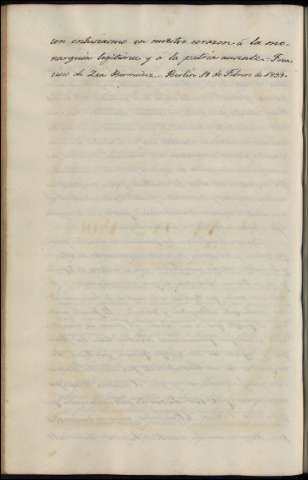 con entusiasmo en nuestro corazon á la mo-
narquia legitima y á la patria ausente. Fran-
cisco de Zea Bermudez. Berlin 18 de Febrero de 1839.